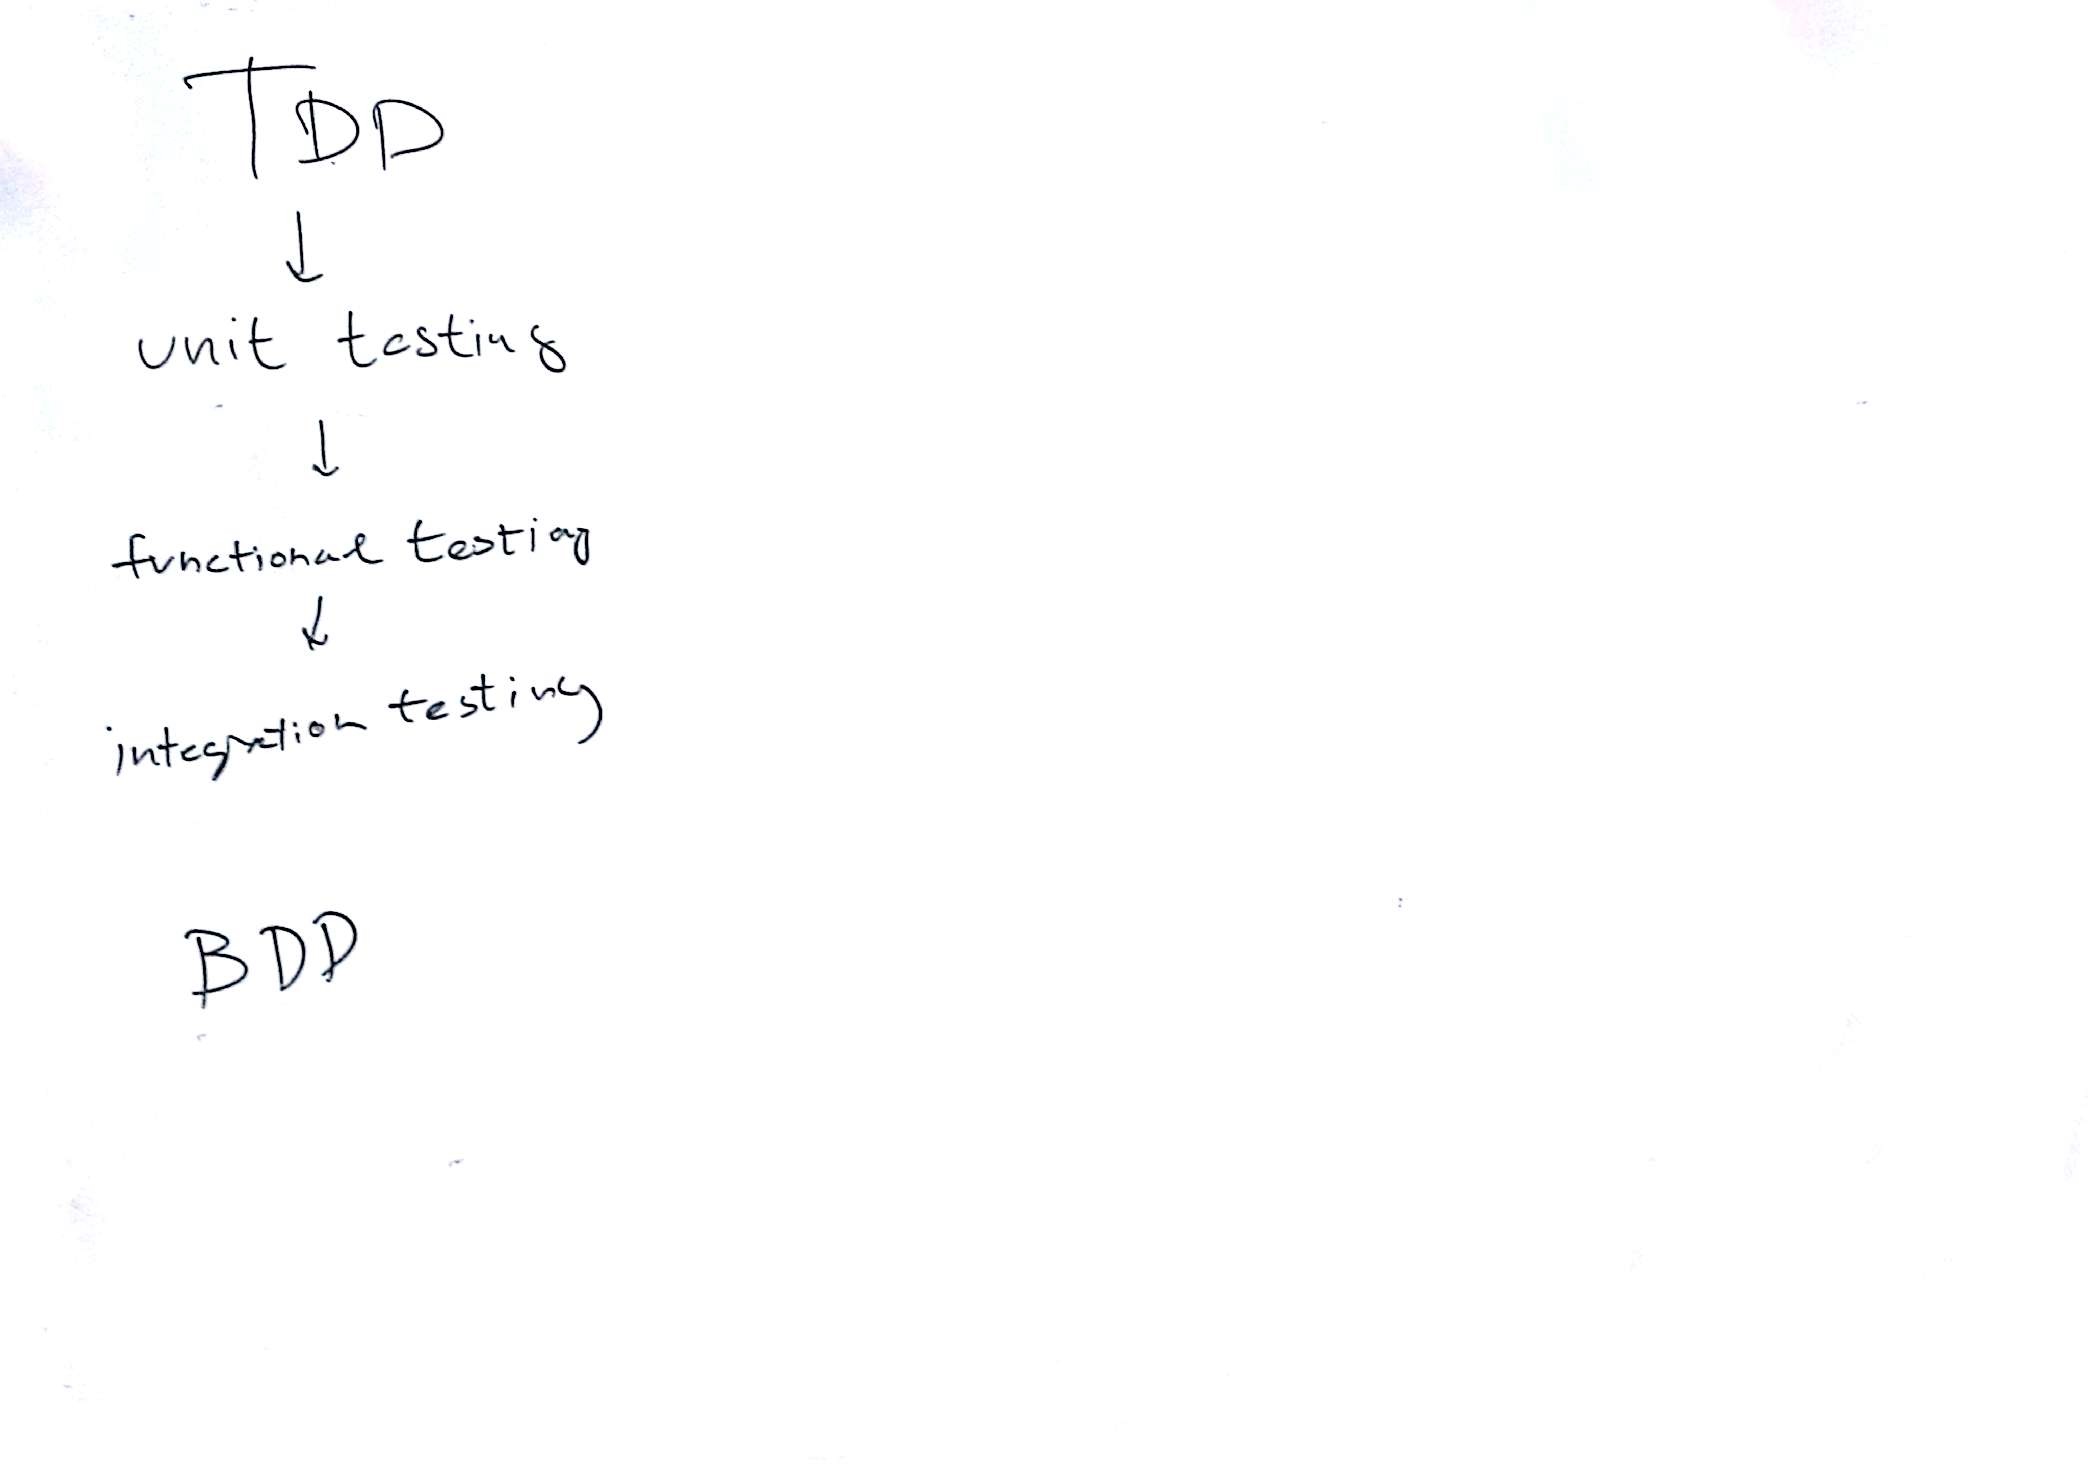 TDD
↓
unit testing
↓
functional testing
↓
integration testing
BDD